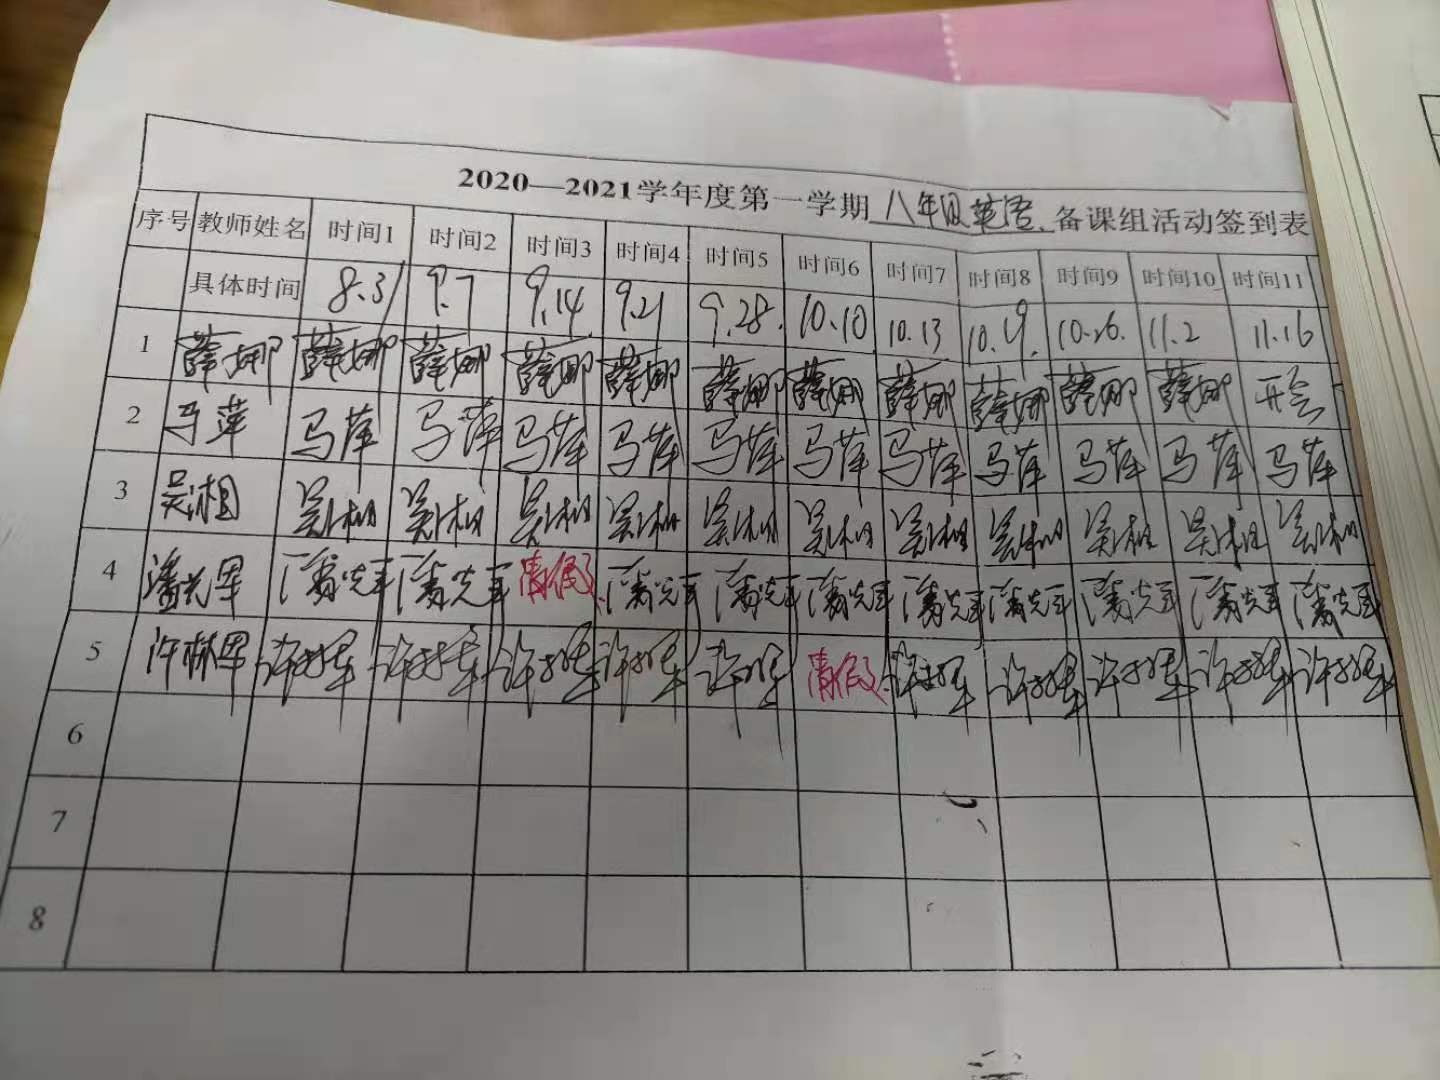 2020—2021学年度第一学期八年级英语备课组活动签到表
序号 教师姓名 时间1 时间2 时间3 时间4 时间5 时间6 时间7 时间8 时间9 时间10 时间11
具体时间 8.31 9.7 9.14 9.21 9.28 10.10 10.13 10.19 10.26 11.2 11.16
1 薛娜 薛娜 薛娜 薛娜 薛娜 薛娜 薛娜 薛娜 薛娜 薛娜 薛娜 开会
2 马萍 马萍 马萍 马萍 马萍 马萍 马萍 马萍 马萍 马萍 马萍 马萍
3 吴湘 吴湘 吴湘 吴湘 吴湘 吴湘 吴湘 吴湘 吴湘 吴湘 吴湘 吴湘
4 潘光军 潘光军 潘光军 请假 潘光军 潘光军 潘光军 潘光军 潘光军 潘光军 潘光军 潘光军
5 许林军 许林军 许林军 许林军 许林军 许林军 请假 许林军 许林军 许林军 许林军 许林军
6
7
8